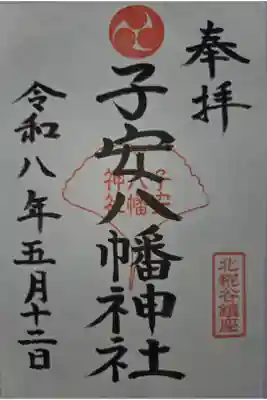 奉拝
子安八幡神社
子安
八幡
神社
北糀谷鎮座
令和八年五月十二日